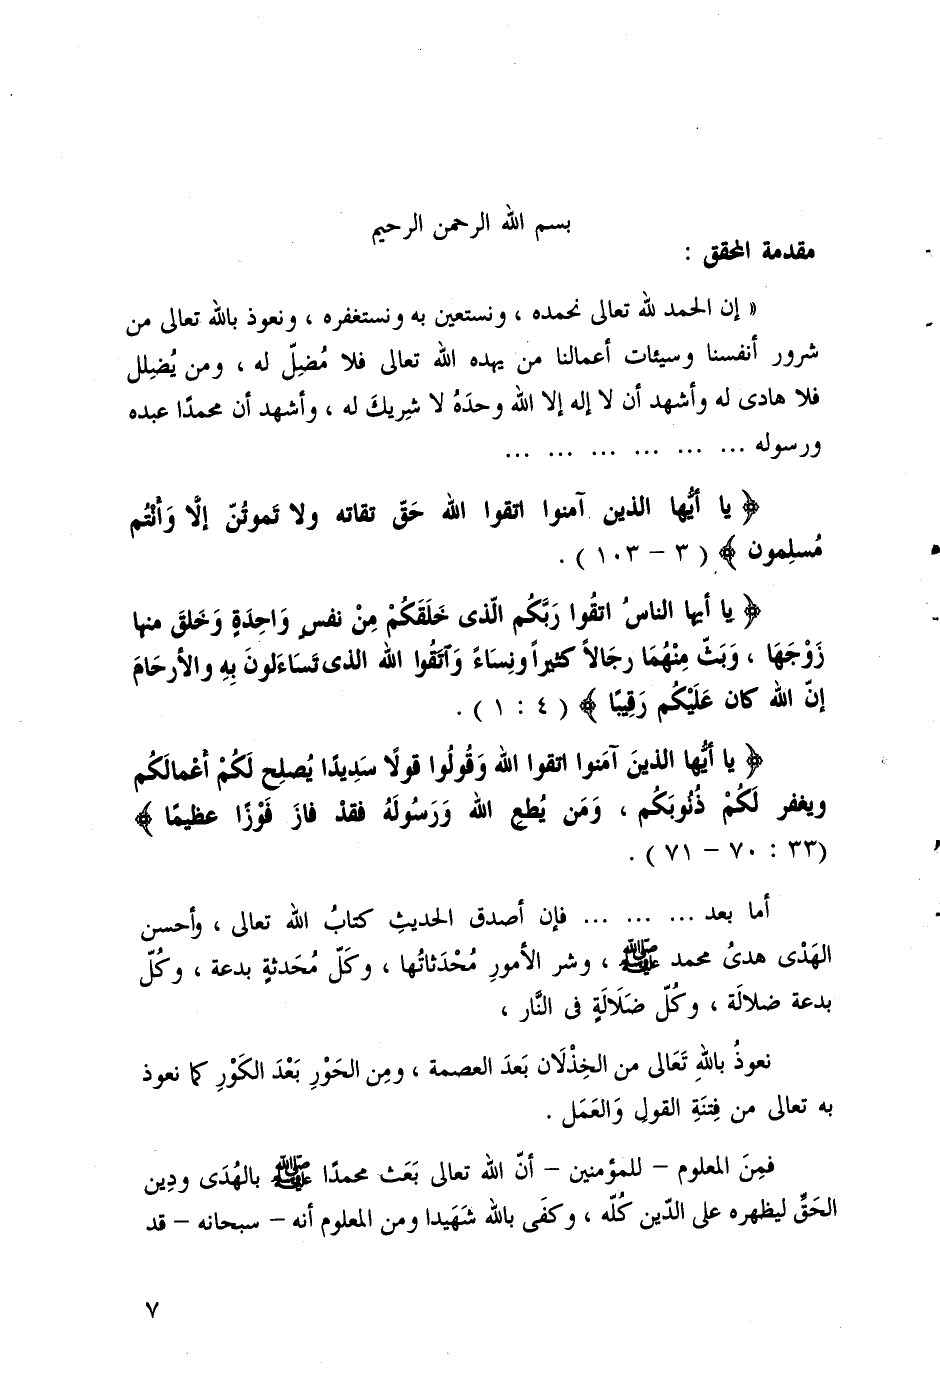 بسم الله الرحمن الرحيم
مقدمة المحقق :
« إن الحمد لله تعالى نحمده ، ونستعين به ونستغفره ، ونعوذ بالله تعالى من
شرور أنفسنا وسيئات أعمالنا من يهده الله تعالى فلا مُضِلّ له ، ومن يُضلِل
فلا هادى له وأشهد أن لا إله إلا الله وحدَهُ لا شِريكَ له ، وأشهد أن محمدًا عبده
ورسوله ... ... ... ... ... ...
﴿ يا أيُّها الذين آمنوا اتقوا الله حَقّ تقاته ولا تَموتُنّ إلَّا وَأَنْتُم
مُسلِمون ﴾ ( ٣ – ١٠٣ ) .
﴿ يا أيها الناسُ اتقُوا رَبَّكُم الّذى خَلَقَكُمْ مِنْ نفسٍ وَاحِدَةٍ وَخَلقَ منها
زَوْجَهَا ، وَبَثّ مِنْهُمَا رجَالاً كثيراً ونِسَاءً وَاتَقُوا الله الذى تَسَاءَلونَ بِهِ والأرحَامَ
إنّ الله كان عَلَيْكُم رَقِيبًا ﴾ ( ٤ : ١ ) .
﴿ يا أيُّها الذينَ آمَنوا اتقوا الله وَقُولُوا قولًا سَدِيدًا يُصلِح لَكُمْ أعْمالَكُم
ويغفر لَكُمْ ذُنُوبَكُم ، وَمَن يُطعِ الله وَرَسُولَهُ فقدْ فازَ فَوْزًا عظيمًا ﴾
(٣٣ : ٧٠ – ٧١ ) .
أما بعد ... ... ... فإن أصدق الحديثِ كتابُ الله تعالى ، وأحسن
الهَدْى هدىُ محمد ﷺ ، وشر الأمورِ مُحْدَثاتُها ، وكَلّ مُحَدثةٍ بدعة ، وكُلّ
بدعة ضلالَة ، وكُلّ ضَلَالَةٍ فى النَّار ،
نعوذُ باللهِ تَعَالى من الخِذْلَان بَعدَ العصمة ، ومِن الحَوْرِ بَعْدَ الكَوْرِ كما نعوذ
به تعالى من فِتنَةِ القولِ وَالعَمَل .
فمِنَ المعلوم – للمؤمنين – أنّ الله تعالى بَعَث محمدًا ﷺ بالهُدَى ودِين
الحَقِّ ليظهره على الدّين كُلّه ، وكفَى بالله شَهَيدا ومن المعلوم أنه – سبحانه – قد
٧